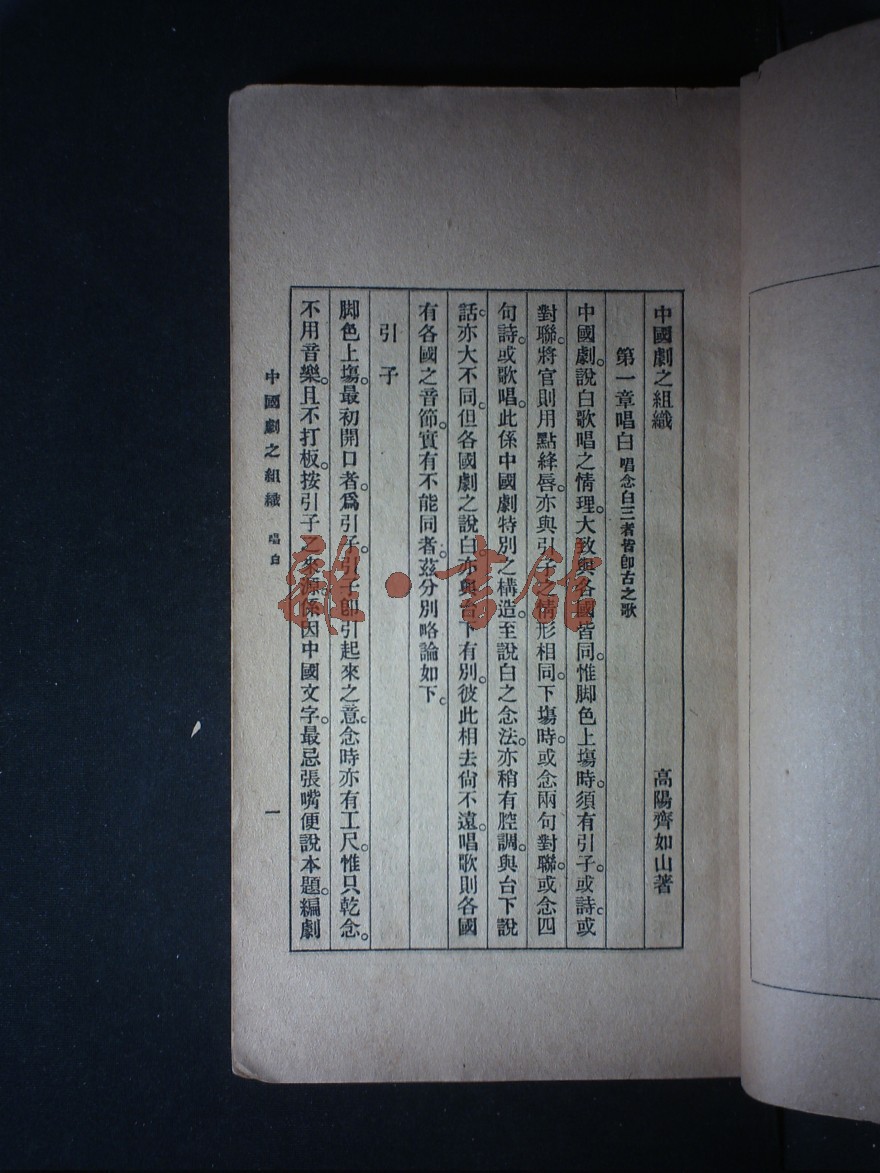 中國劇之組織　高陽齊如山著
第一章唱白 唱念白三者皆卽古之歌
中國劇。說白歌唱之情理。大致與各國皆同。惟脚色上塲時。須有引子。或詩。或
對聯。將官則用點絳唇。亦與引子之情形相同。下塲時。或念兩句對聯。或念四
句詩。或歌唱。此係中國劇特別之構造。至說白之念法。亦稍有腔調。與台下說
話。亦大不同。但各國劇之說白。亦與台下有別。彼此相去尙不遠。唱歌則各國
有各國之音節。實有不能同者。茲分別略論如下。
引子
脚色上塲。最初開口者。爲引子。引子卽引起來之意。念時亦有工尺。惟只乾念。
不用音樂。且不打板。按引子之來源。係因中國文字。最忌張嘴便說本題。編劇
中國劇之組織　唱白　一
雜·書館